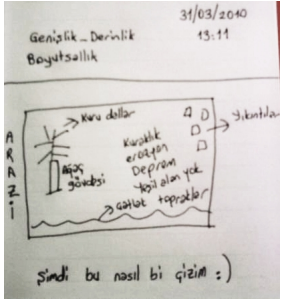 31/03/2010
Genişlik_Derinlik
13:11
Boyutsallık
ARAZİ
Kuru dallar
Ağaç
gövdesi
Kuraklık
erozyon
Deprem
Yeşil alan yok
Çatlak topraklar
Yıkıntılar
Şimdi bu nasıl bi çizim :)